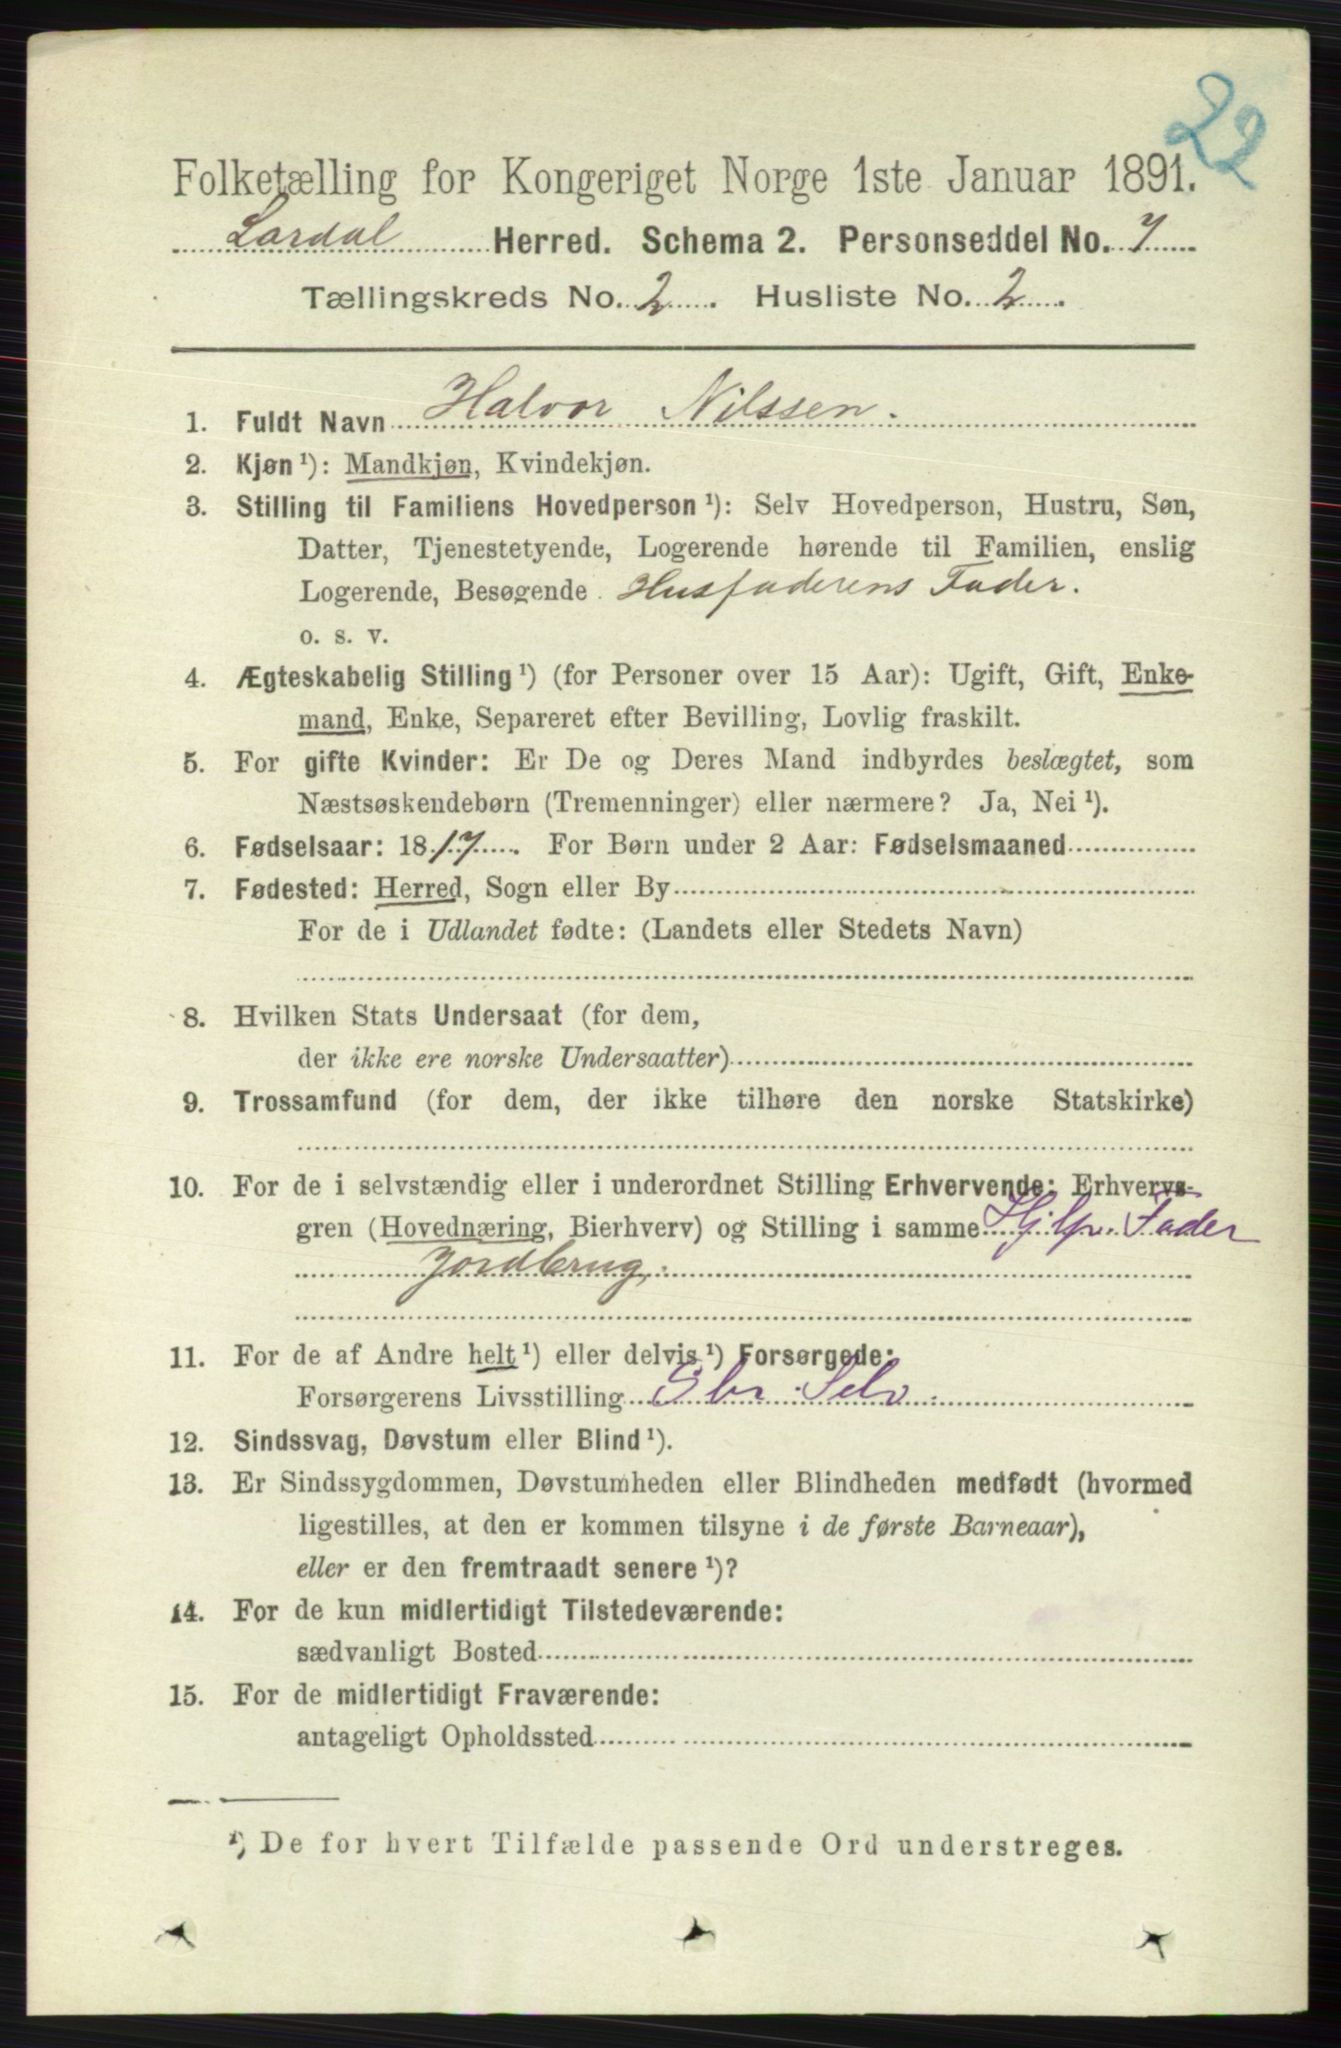 22
Folketælling for Kongeriget Norge 1ste Januar 1891.
Lardal Herred. Schema 2. Personseddel No. 7
Tællingskreds No. 2. Husliste No. 2.
1. Fuldt Navn Halvor Nilssen.
2. Kjøn ¹): Mandkjøn, Kvindekjøn.
3. Stilling til Familiens Hovedperson ¹): Selv Hovedperson, Hustru, Søn,
Datter, Tjenestetyende, Logerende hørende til Familien, enslig
Logerende, Besøgende Husfaderens Fader.
o. s. v.
4. Ægteskabelig Stilling ¹) (for Personer over 15 Aar): Ugift, Gift, Enke-
mand, Enke, Separeret efter Bevilling, Lovlig fraskilt.
5. For gifte Kvinder: Er De og Deres Mand indbyrdes beslægtet, som
Næstsøskendebørn (Tremenninger) eller nærmere? Ja, Nei ¹).
6. Fødselsaar: 1817. For Børn under 2 Aar: Fødselsmaaned
7. Fødested: Herred, Sogn eller By
For de i Udlandet fødte: (Landets eller Stedets Navn)
8. Hvilken Stats Undersaat (for dem,
der ikke ere norske Undersaatter)
9. Trossamfund (for dem, der ikke tilhøre den norske Statskirke)
10. For de i selvstændig eller i underordnet Stilling Erhvervende: Erhvervs-
gren (Hovednæring, Bierhverv) og Stilling i samme Hjelper Fader
Jordbrug.
11. For de af Andre helt ¹) eller delvis ¹) Forsørgede:
Forsørgerens Livsstilling Gbr. Selv.
12. Sindssvag, Døvstum eller Blind ¹).
13. Er Sindssygdommen, Døvstumheden eller Blindheden medfødt (hvormed
ligestilles, at den er kommen tilsyne i de første Barneaar),
eller er den fremtraadt senere ¹)?
14. For de kun midlertidigt Tilstedeværende:
sædvanligt Bosted
15. For de midlertidigt Fraværende:
antageligt Opholdssted
¹) De for hvert Tilfælde passende Ord understreges.